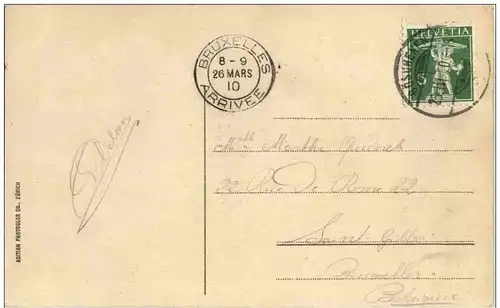 BRUXELLES
8 - 9
26 MARS
10
ARRIVEE
HELVETIA
5
Mlle Marthe
22 Rue De 22
Saint-Gilles
Bruxelles
Belgique
EDITION PHOTOGLOB CO., ZÜRICH